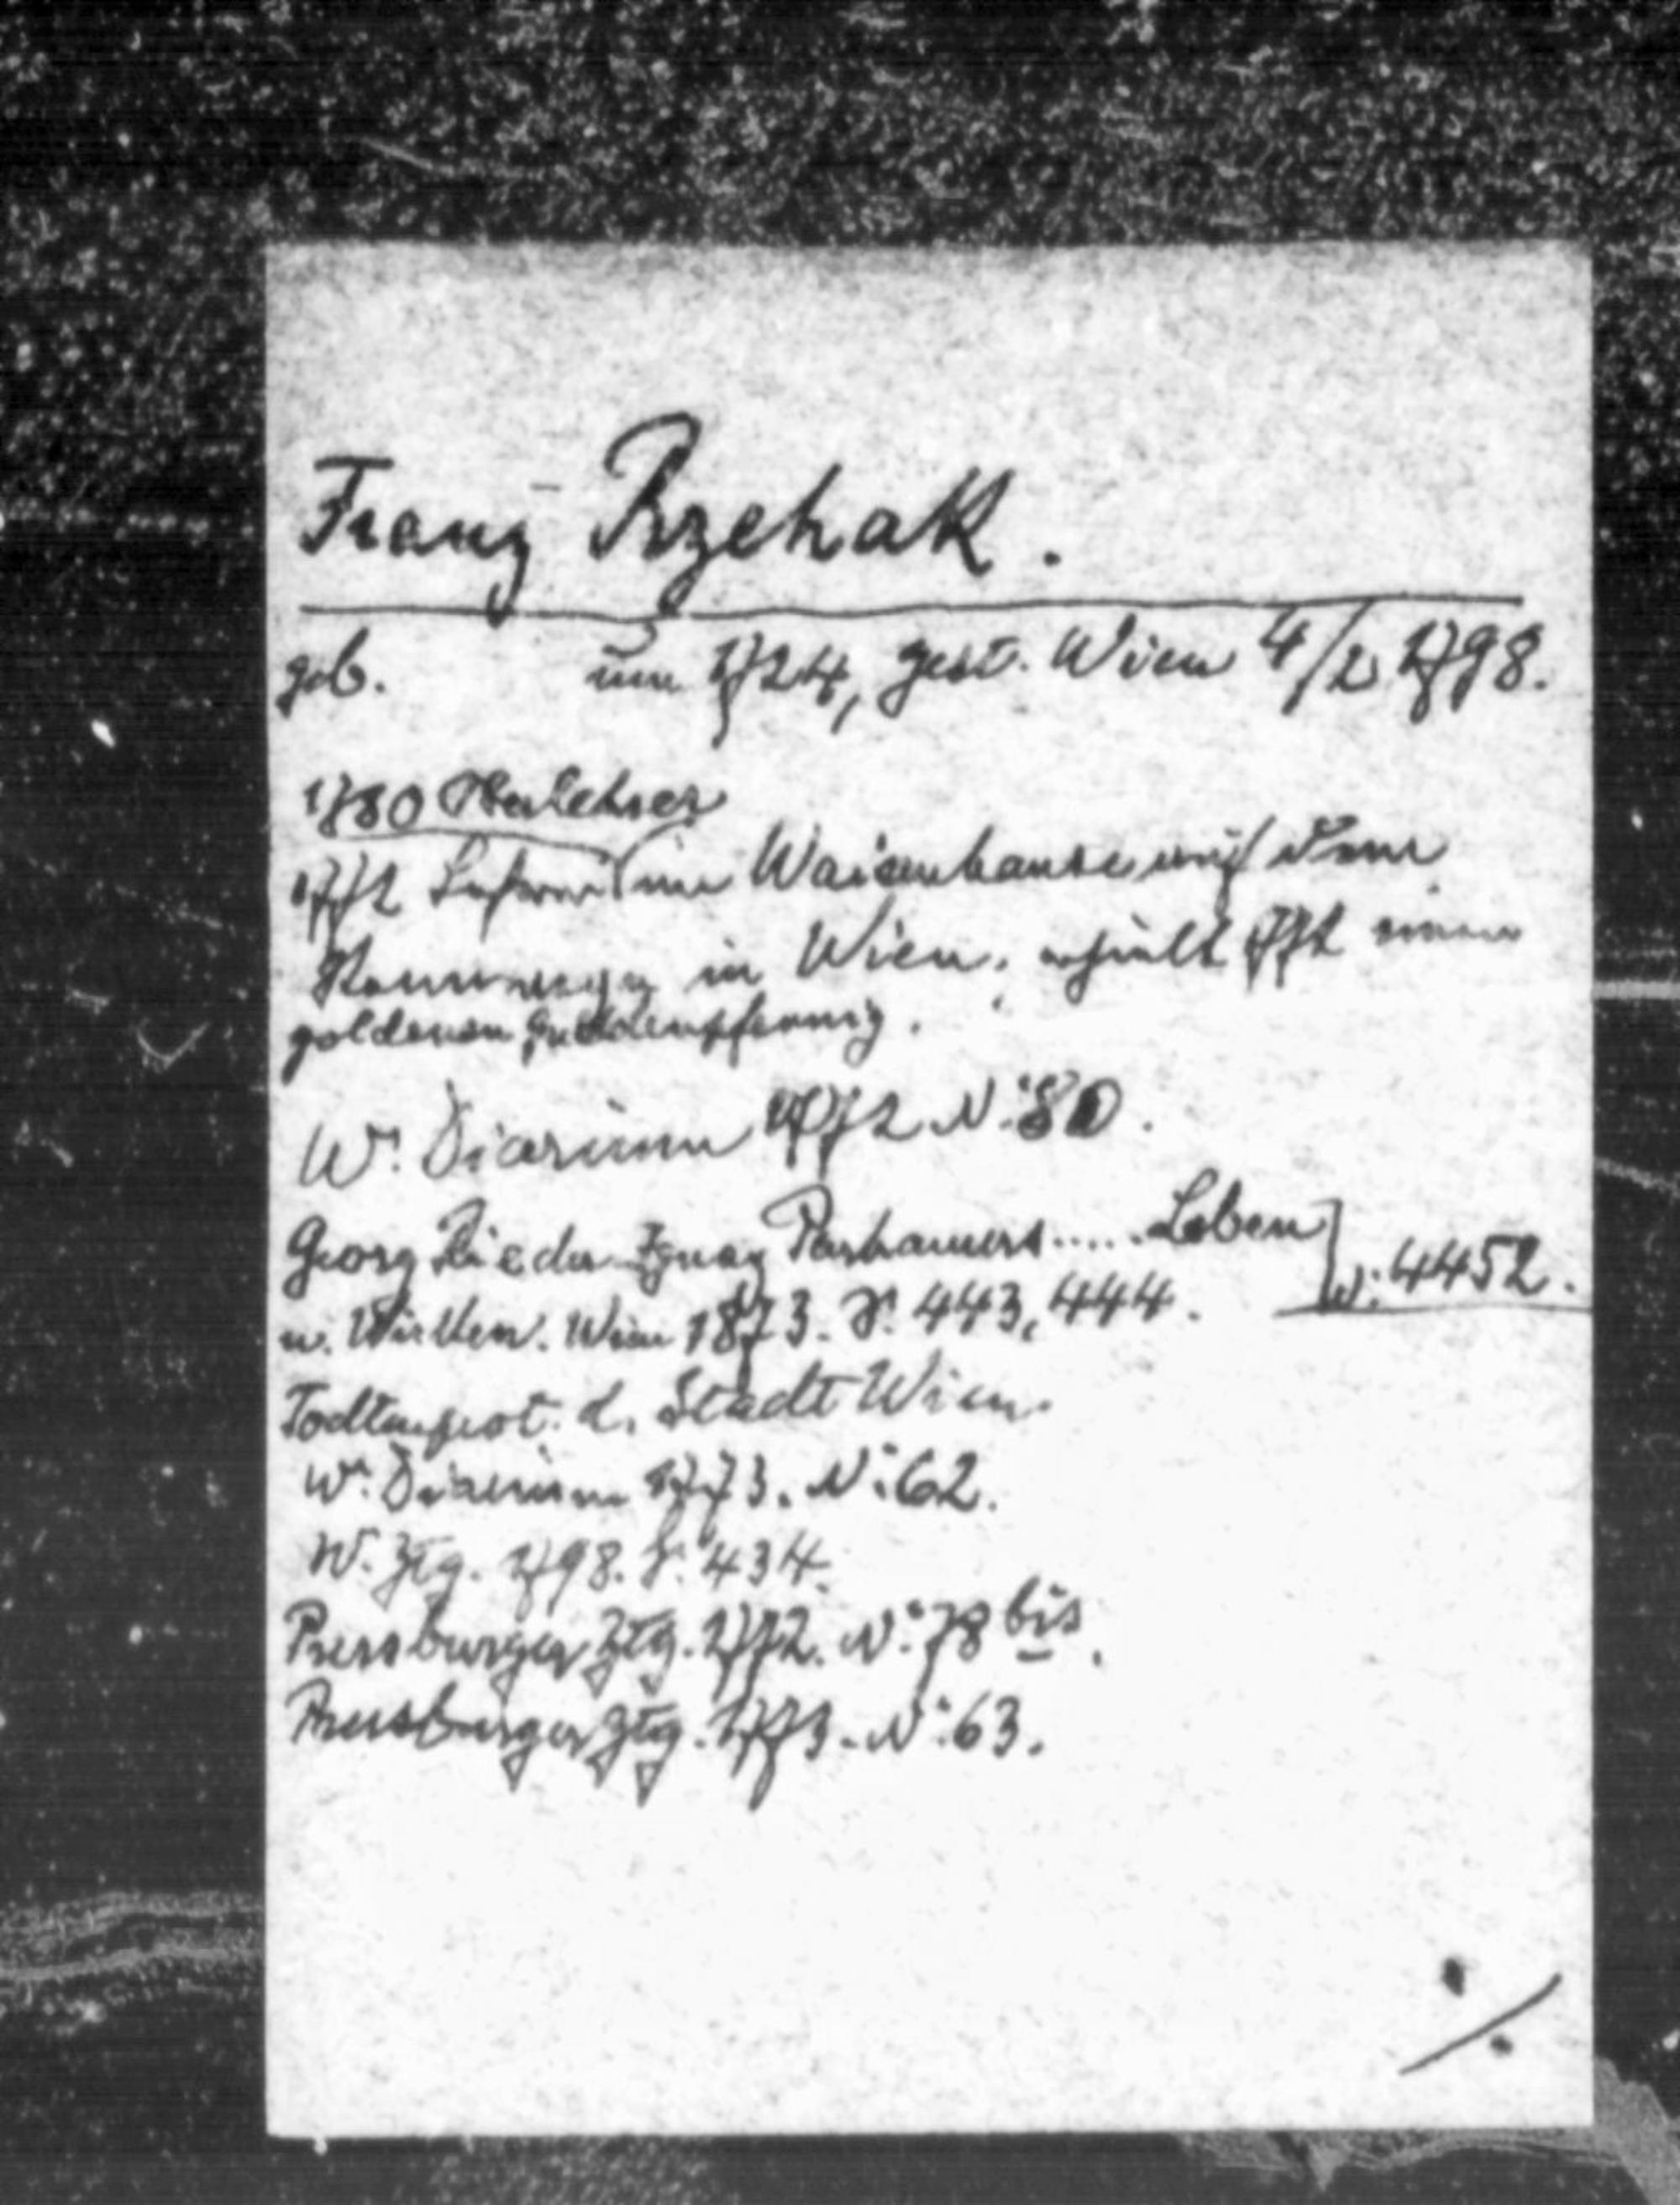 Franz Rzehak.
geb. um 1724, gest. Wien 4/2 1798.
1780 Oberlehrer
1772 Lehrer im Waisenhause auf dem
Rennwege in Wien, erhielt 1772 einen
goldenen Gnadenpfennig.
Wr. Diarium 1772 No: 80.
Georg Rieder Ignaz Parhamers ..... Leben
u. Wirken. Wien 1873. S. 443, 444. N: 4452.
Todtenprot. d. Stadt Wien.
Wr. Diarium 1773. No: 62.
W. Ztg. 1798. S. 434.
Pressburger Ztg. 1772. No: 78 bis.
Pressburger Ztg. 1773. No: 63.
./.